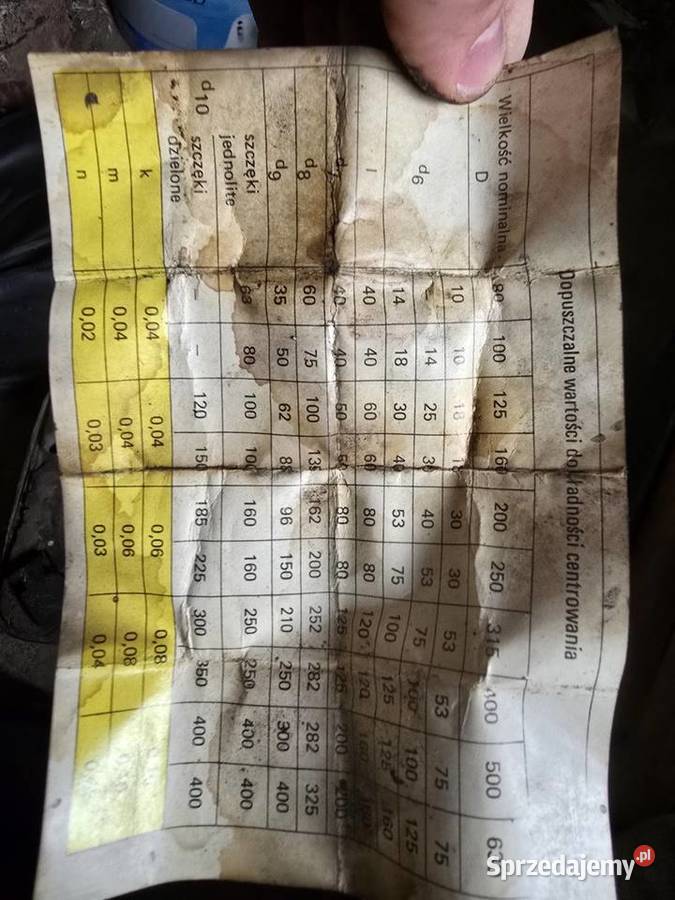 Dopuszczalne wartości dokładności centrowania
Wielkość nominalna
D 80 100 125 160 200 250 315 400 500 63
d6 10 10 18 30 30 53 53 75 75
14 25 40 53 75 100 100 125
14 18 30 40 53 75 100 125 125 160
l 40 40 60 60 80 80 120 120 160
40 40 50 50 80 80 125 125 200 200
d8 60 75 100 162 200 252 282 282 325
d9 35 50 62 88 96 150 210 250 300 400
szczęki jednolite 63 80 100 100 160 160 250 250 400 400
d10 szczęki dzielone – – 120 150 185 225 300 350 400 400
k 0,04 0,04 0,06 0,08
m 0,04 0,04 0,06 0,08
n 0,02 0,03 0,03 0,04
Sprzedajemy.pl